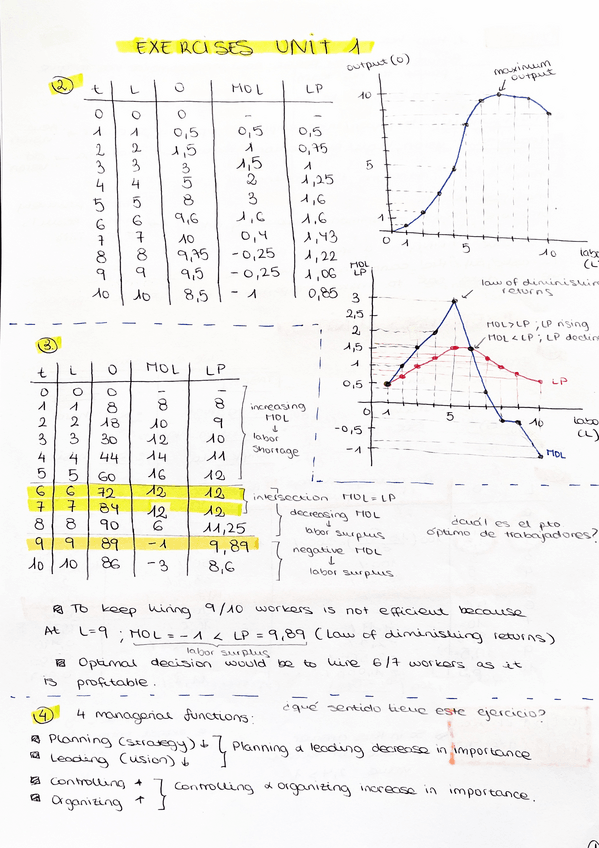 EXERCISES UNIT 1
2
t L O MOL LP
0 0 0 - -
1 1 0,5 0,5 0,5
2 2 1,5 1 0,75
3 3 3 1,5 1
4 4 5 2 1,25
5 5 8 3 1,6
6 6 9,6 1,6 1,6
7 7 10 0,4 1,43
8 8 9,75 -0,25 1,22
9 9 9,5 -0,25 1,06
10 10 8,5 -1 0,85
output (O)
maximum
output
10
5
1
0 1 5 10
labo
(L)
MOL
LP
law of diminishin
returns
3
2,5
2
1,5
1
0,5
0 1 5 10
-0,5
-1
MOL>LP ; LP rising
MOL<LP ; LP declin
LP
MOL
labo
(L)
3.
t L O MOL LP
0 0 0 - -
1 1 8 8 8
2 2 18 10 9
3 3 30 12 10
4 4 44 14 11
5 5 60 16 12
6 6 72 12 12
7 7 84 12 12
8 8 90 6 11,25
9 9 89 -1 9,89
10 10 86 -3 8,6
increasing
MOL
↓
labor
shortage
intersection MOL=LP
decreasing MOL
↓
labor surplus
negative MOL
↓
labor surplus
¿cuál es el pto
óptimo de trabajadores?
To keep hiring 9/10 workers is not efficient because
At L=9 ; MOL = -1 < LP = 9,89 (Law of diminishing returns)
labor surplus
Optimal decision would be to hire 6/7 workers as it
is profitable.
4 4 managerial functions:
¿qué sentido tiene este ejercicio?
Planning (strategy) ↓
Leading (vision) ↓
Planning & leading decrease in importance
Controlling ↑
Organizing ↑
Controlling & organizing increase in importance.